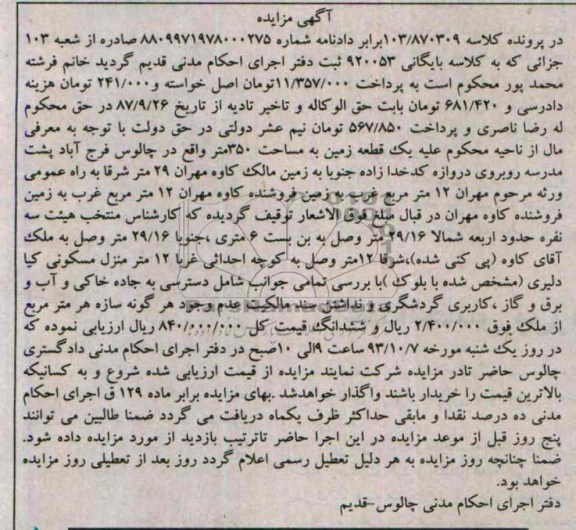 آگهی مزایده
در پرونده کلاسه ۱۰۳/۸۷۰۳۰۹برابر دادنامه شماره ۸۸۰۹۹۷۱۹۷۸۰۰۰۲۷۵ صادره از شعبه ۱۰۳
جزائی که به کلاسه بایگانی ۹۲۰۰۵۳ ثبت دفتر اجرای احکام مدنی قدیم گردید خانم فرشته
محمد پور محکوم است به پرداخت ۱۱/۳۵۷/۰۰۰تومان اصل خواسته و۲۴۱/۰۰۰ تومان هزینه
دادرسی و ۶۸۱/۴۲۰ تومان بابت حق الوکاله و تاخیر تادیه از تاریخ ۸۷/۹/۲۶ در حق محکوم
له رضا ناصری و پرداخت ۵۶۷/۸۵۰ تومان نیم عشر دولتی در حق دولت با توجه به معرفی
مال از ناحیه محکوم علیه یک قطعه زمین به مساحت ۳۵۰متر واقع در چالوس فرج آباد پشت
مدرسه روبروی دروازه کدخدا زاده جنوبا به زمین مالک کاوه مهران ۲۹ متر شرقا به راه عمومی
ورثه مرحوم مهران ۱۲ متر مربع غرب به زمین فروشنده کاوه مهران ۱۲ متر مربع غرب به زمین
فروشنده کاوه مهران در قبال مبلغ فوق الاشعار توقیف گردیده که کارشناس منتخب هیئت سه
نفره حدود اربعه شمالا ۲۹/۱۶ متر وصل به بن بست ۶ متری ،جنوبا ۲۹/۱۶ متر وصل به ملک
آقای کاوه (پی کنی شده)،شرقا ۱۲متر وصل به کوچه احداثی غربا ۱۲ متر منزل مسکونی کیا
دلیری (مشخص شده با بلوک )با بررسی تمامی جوانب شامل دسترسی به جاده خاکی و آب و
برق و گاز ،کاربری گردشگری و نداشتن سند مالکیت عدم وجود هر گونه سازه هر متر مربع
از ملک فوق ۲/۴۰۰/۰۰۰ ریال و ششدانگ قیمت کل ۸۴۰/۰۰۰/۰۰۰ ریال ارزیابی نموده که
در روز یک شنبه مورخه ۹۳/۱۰/۷ ساعت ۹الی ۱۰صبح در دفتر اجرای احکام مدنی دادگستری
چالوس حاضر تادر مزایده شرکت نمایند مزایده از قیمت ارزیابی شده شروع و به کسانیکه
بالاترین قیمت را خریدار باشند واگذار خواهدشد .بهای مزایده برابر ماده ۱۲۹ ق اجرای احکام
مدنی ده درصد نقدا و مابقی حداکثر ظرف یکماه دریافت می گردد ضمنا طالبین می توانند
پنج روز قبل از موعد مزایده در این اجرا حاضر تاترتیب بازدید از مورد مزایده داده شود.
ضمنا چنانچه روز مزایده به هر دلیل تعطیل رسمی اعلام گردد روز بعد از تعطیلی روز مزایده
خواهد بود.
دفتر اجرای احکام مدنی چالوس-قدیم